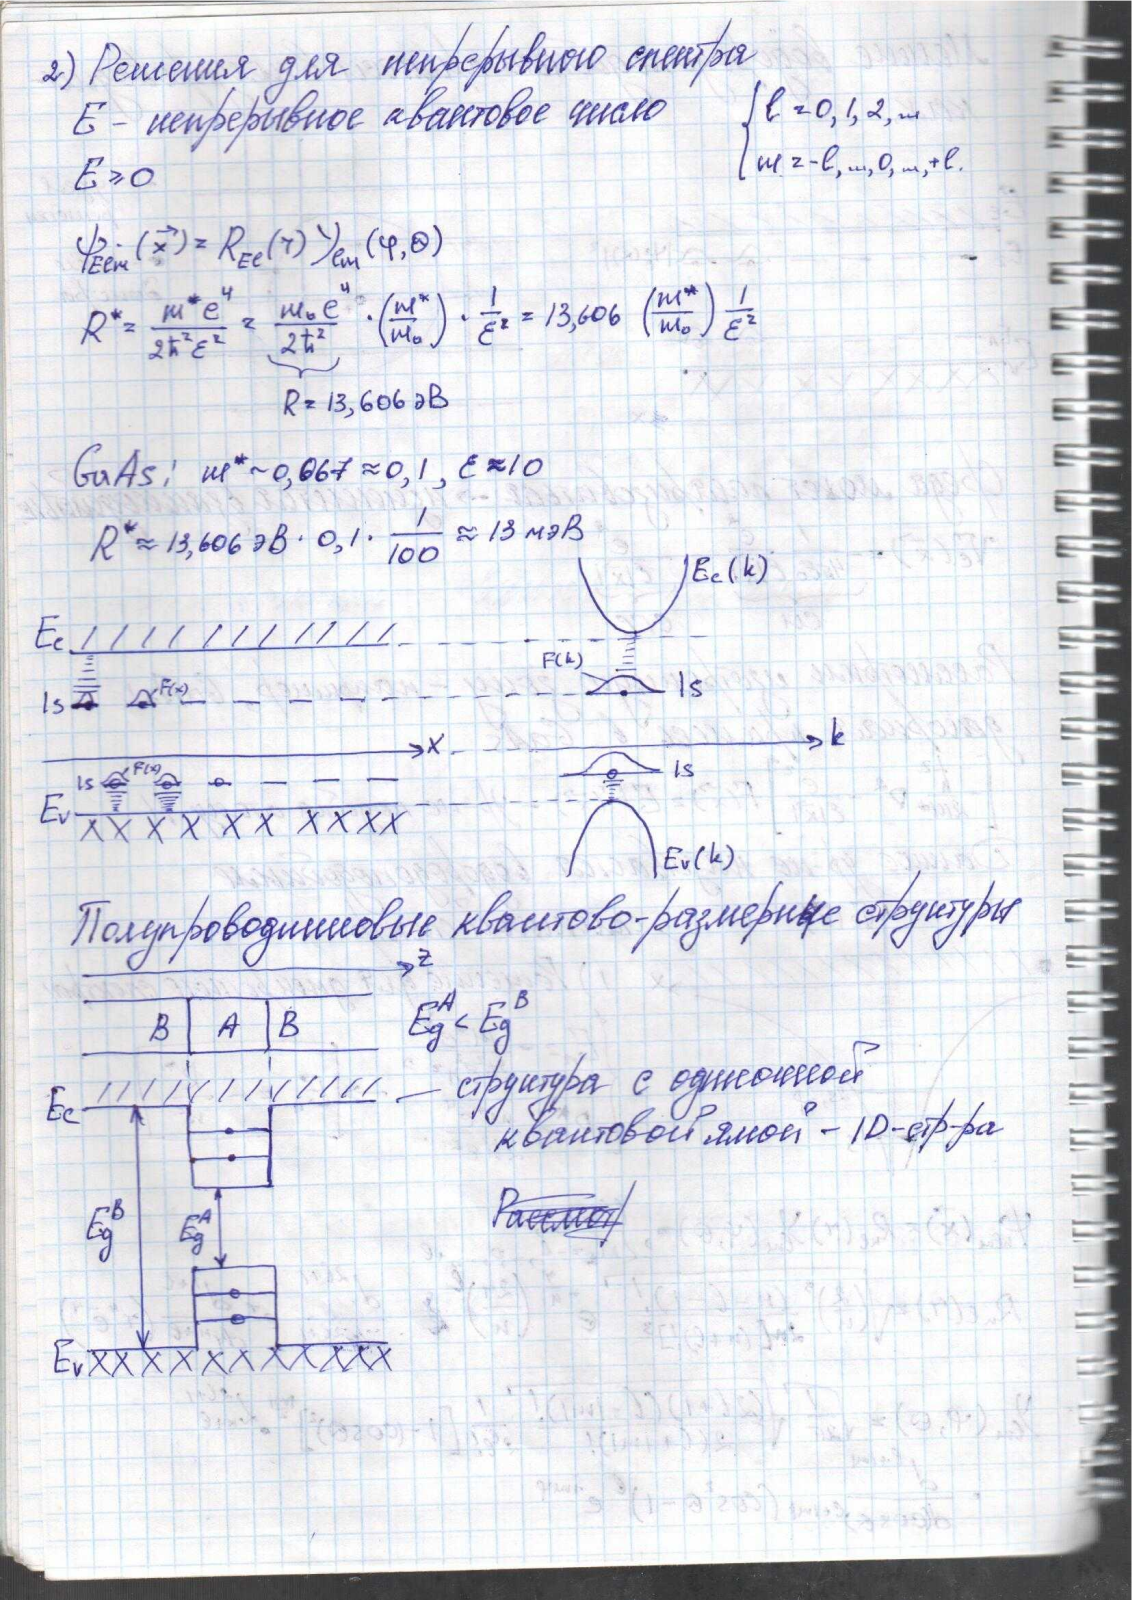 2) Решения для непрерывного спектра
E - непрерывное квантовое число
{ l = 0, 1, 2, ...
m = -l, ..., 0, ..., +l.
E ⩾ 0
ψ_Elm (x⃗) = R_El (r) Y_lm (φ, Θ)
R* = m*e⁴ / 2ħ²ε² = m₀e⁴ / 2ħ² · (m*/m₀) · 1/ε² = 13,606 (m*/m₀) 1/ε²
R = 13,606 эВ
GaAs: m* ~ 0,067 ≈ 0,1, ε ≈ 10
R* ≈ 13,606 эВ · 0,1 · 1/100 ≈ 13 мэВ
Ec(k)
Ec
F(k)
1s F(x) 1s
x k
1s F(x) 1s
Ev
Ev(k)
Полупроводниковые квантово-размерные структуры
z
B A B Eg^A < Eg^B
Ec — структура с одиночной
квантовой ямой - 1D-стр-ра
Eg^B Eg^A
Рассмот
Ev